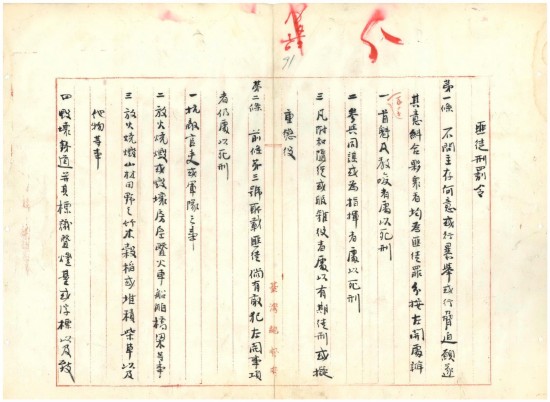 匪徒刑罰令
第一條 不問主存何意或行暴舉或行脅迫願遂
其意糾合夥眾者均為匪徒罪分按左開處辦
一 首魁及教唆者處以死刑
二 參與同謀或為指揮者處以死刑
三 凡附和隨從或服雜使者處以有期徒刑或擬
重懲役
第二條 前條第三號所載匪徒倘有敢犯左開事項
者仍處以死刑
一 抗敵官吏或軍隊之輩
二 放火燒燬或毀壞房屋暨火車船舶橋梁等事
三 放火燒燬山林田野之竹木穀稻或堆積柴草以及
他物等事
四 毀壞鐵道並其標識暨燈臺或浮標以及致
臺灣總督府